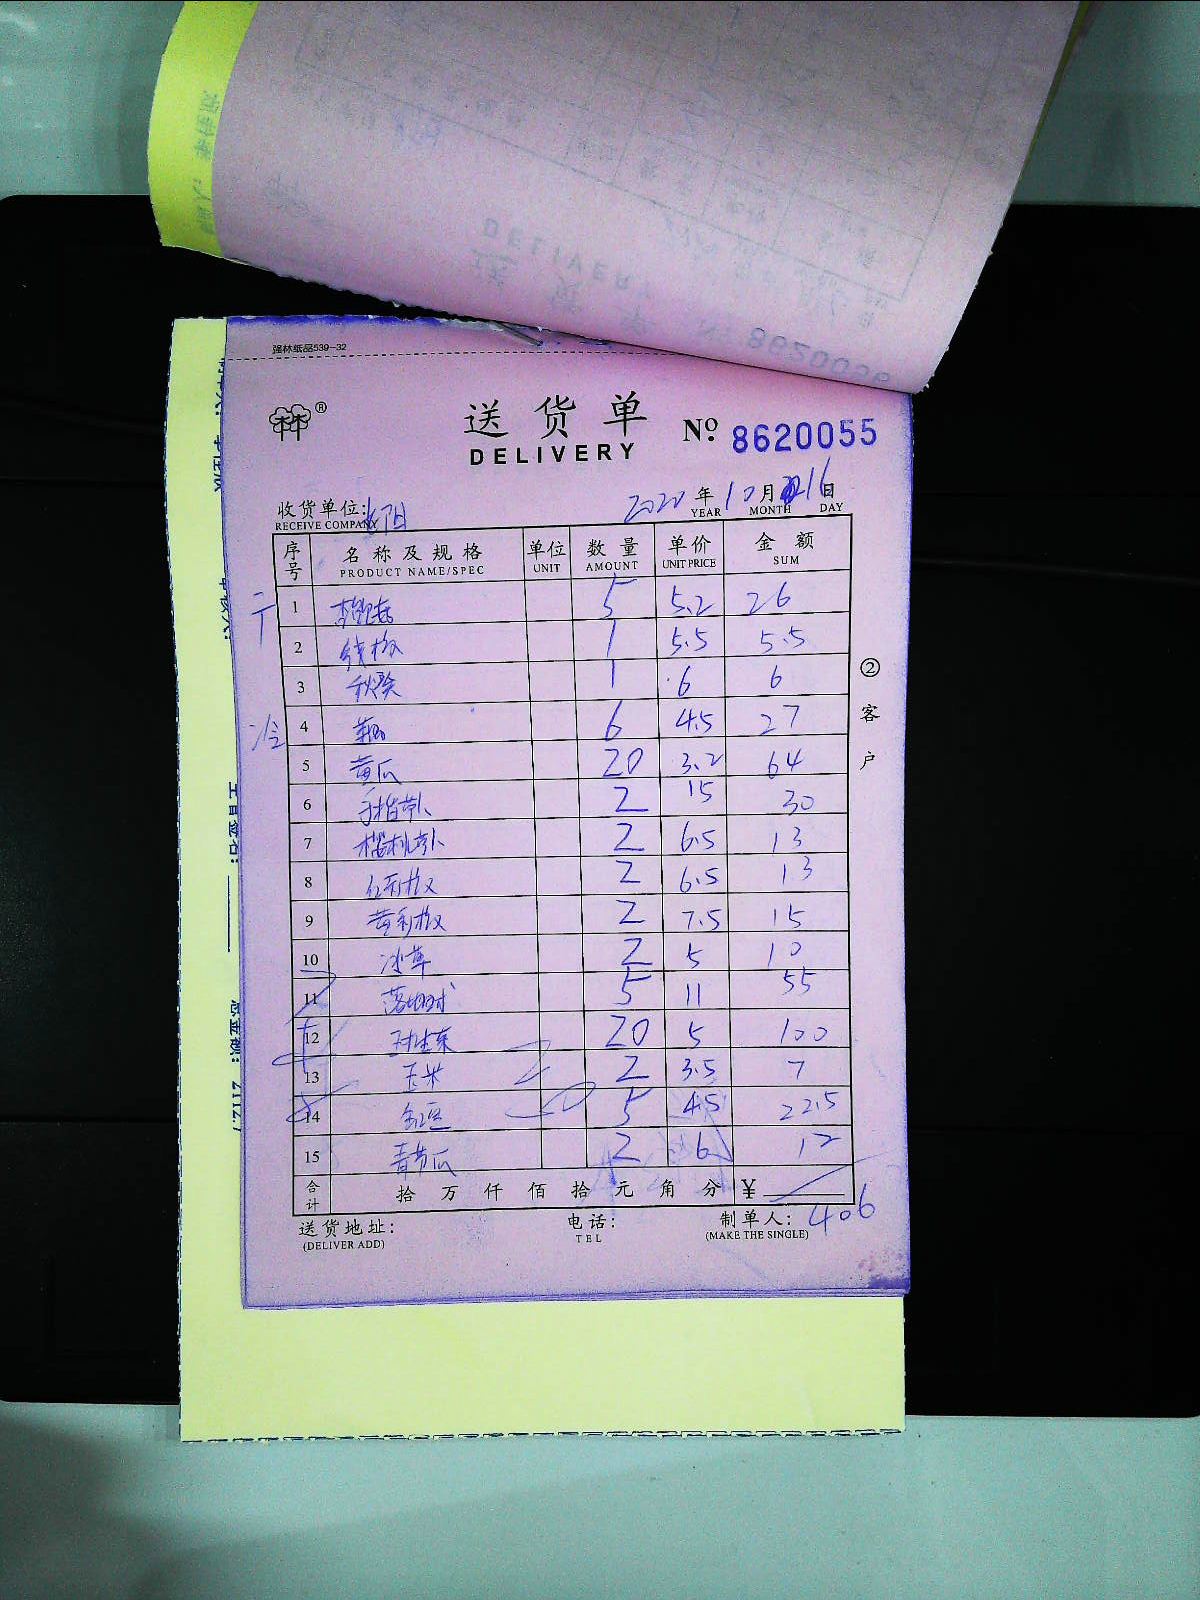 强林纸品539-32
®
送货单
No. 8620055
DELIVERY
收货单位:
RECEIVE COMPANY
2020年10月16日
YEAR MONTH DAY
序号 名称及规格 单位 数量 单价 金额
PRODUCT NAME/SPEC UNIT AMOUNT UNIT PRICE SUM
1 5 5.2 26
2 线椒 1 5.5 5.5
3 秋葵 1 6 6
冷
4 6 4.5 27
5 黄瓜 20 3.2 64
6 手指萝卜 2 15 30
7 樱桃萝卜 2 6.5 13
8 红彩椒 2 6.5 13
9 黄彩椒 2 7.5 15
10 冰草 2 5 10
11 5 11 55
12 球生菜 20 5 100
13 玉米 2 3.5 7
14 5 4.5 22.5
15 青节瓜 2 6 12
合计 拾万仟佰拾元角分 ¥
406
送货地址: 电话: 制单人:
(DELIVER ADD) TEL (MAKE THE SINGLE)
②客户
8620056
DELIVERY